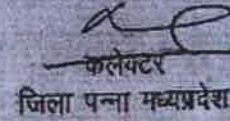 कलेक्टर
जिला पन्ना मध्यप्रदेश